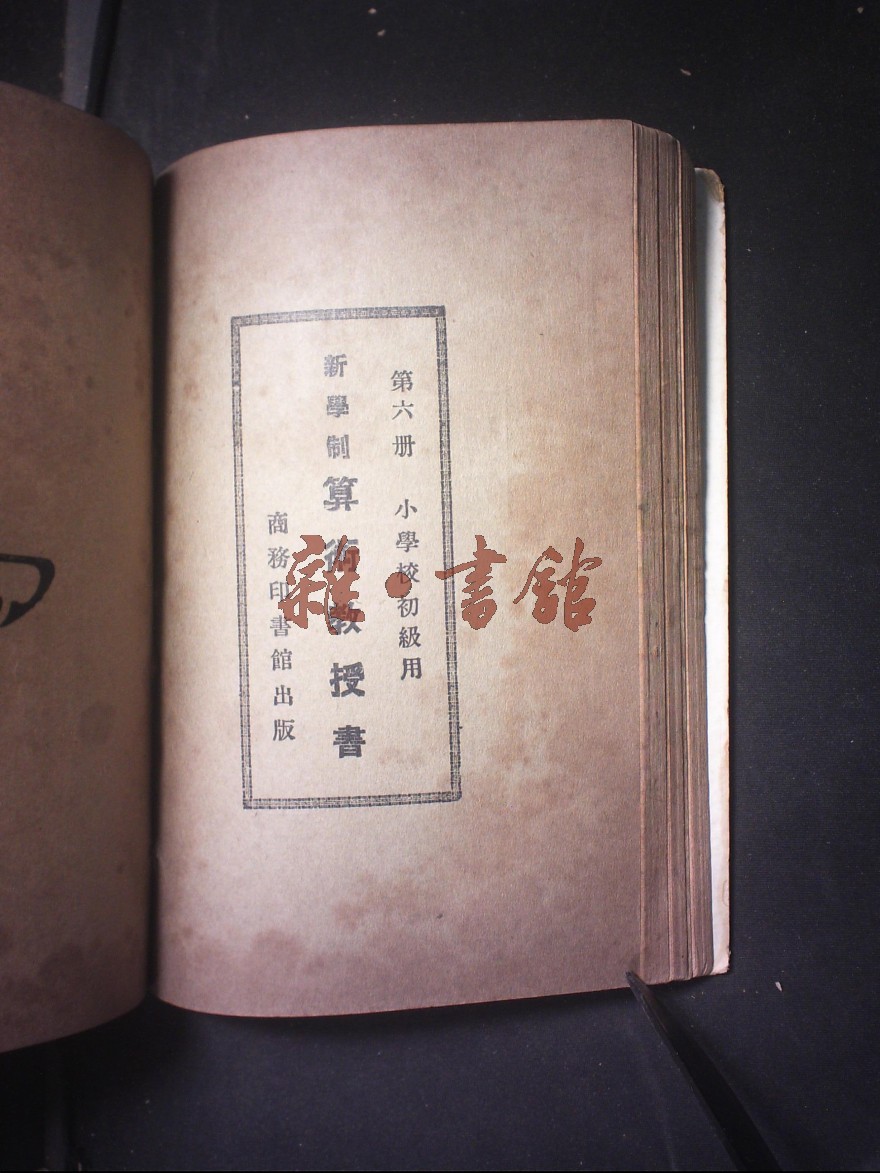 第六册 小學校初級用
新學制算術教授書
商務印書館出版
雜·書館